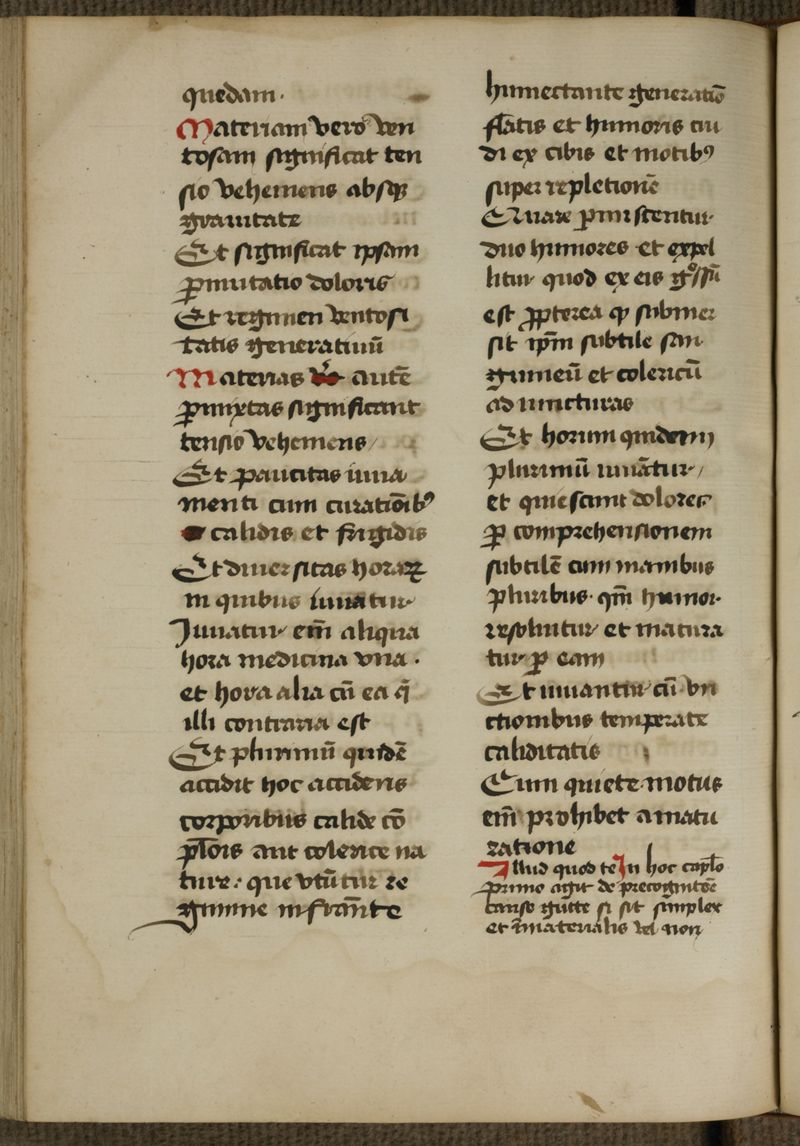 quedam·
Materiam vero ven
tosam significat ten
sio vehemens absqꝫ
grauitate
Et significat ipsam
ꝑmutatio doloris
Et regimen ventosi
tatis generatiuū
Materias vero autē
ꝑmixtas significant
tensio vehemens
Et paucitas iuua
menti cum curatiōibꝰ
calidis et frigidis
Et diuersitas horaꝝ
in quibus iuuatur
Juuatur em̄ aliqua
hora medicina vna ·
et hora alia cū ea q̄
illi contraria est
Et plurimū quidē
accidit hoc accidens
corporibus calide cō
plōis aut colerice na
ture· que vtūtur re
gimine infrām̄te
humectante generatiō
flātis et humoris cru
di ex cibis et motibꝰ
super repletionē
Quare ꝑmiscentur
duo humores et expel
litur quod ex eis gͦssū
est ꝓpterea ꝙ submer
sit ipm̄ subtile san
guineū et colericū
ad iuncturas
Et horum quidem
plurimū iuuātur
et quiescunt dolores
ꝑ comprehensionem
subtilē cum manibus
pluribus· qm̄ humor
resoluitur et matura
tur ꝑ eam
Et iuuantur cū vn
ctionibus temperate
caliditatis
Cum quiete motus
em̄ prohibet a matu
ratione
Illud quod te In hoc caplo
primo agit de precognitōe
cause gutte si sit simplex
et īmaterialis vel non